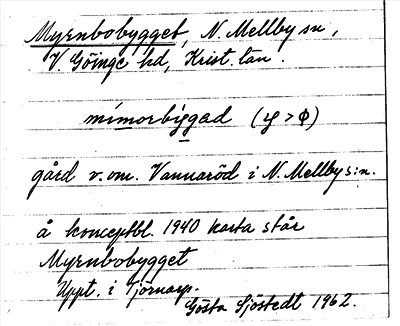 Myrnbobygget, N. Mellby sn,
V Göinge hd, Krist. län.
mímorbýggad (y > ɸ)
gård v. om. Vannaröd i N. Mellby s:n.
å konceptbl. 1940 karta står
Myrnbobygget
Uppt. i Tjörnarp.
Gösta Sjöstedt 1962.